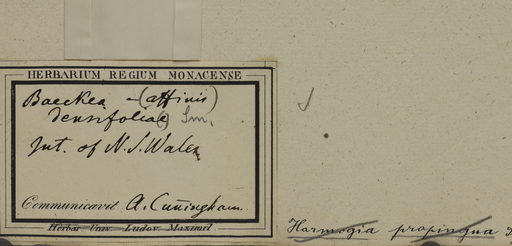 HERBARIUM REGIUM MONACENSE
Baeckea - (affinis)
densifoliae() Sm.
Int. of N. S. Wales
Communicavit A. Cuningham.
Herbar. Univ. Ludov. Maximil
Harmogia propinqua